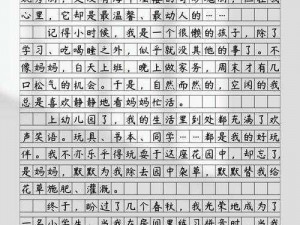 心里，它却是最温馨、最动人的……
记得小时候，我是一个很懒的孩子，除了
学习、吃喝睡之外，似乎就没其他的事了。不
像妈妈，白天上班，晚上做家务，周末才有几
口松气的机会。于是，自然而然的，空闲的我
总是喜欢静静地看妈妈忙活。
上幼儿园了，我的生活里到处都充满了欢
声笑语。玩具、书本、同学……处都是我的好玩
伴。我不亦乐乎得玩耍于这座花园中，却忘了
是妈妈，默默为我除去园中杂草，默默替我给
花草施肥、灌溉。
终于，盼过了几个春秋，我光荣地成为了